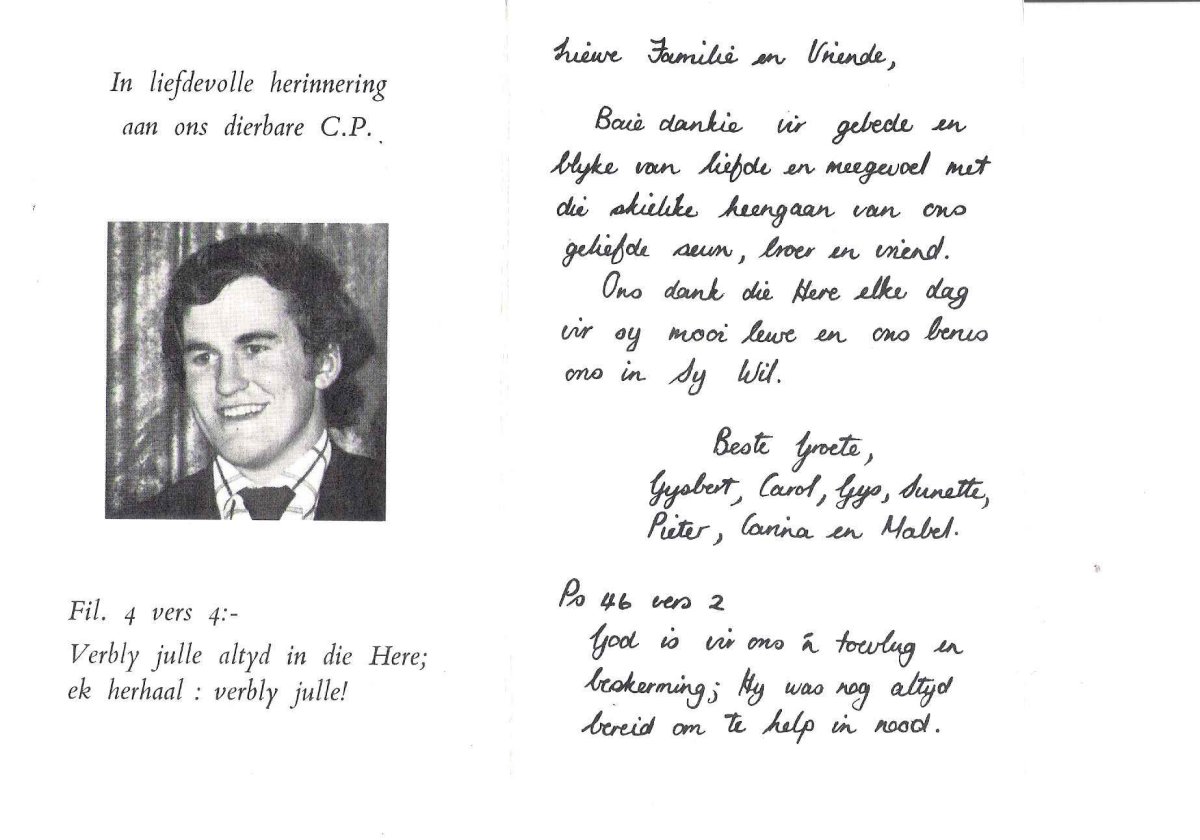 In liefdevolle herinnering
aan ons dierbare C.P.
Fil. 4 vers 4:-
Verbly julle altyd in die Here;
ek herhaal : verbly julle!
Liewe Familie en Vriende,
Baie dankie vir gebede en
blyke van liefde en meegevoel met
die skielike heengaan van ons
geliefde seun, broer en vriend.
Ons dank die Here elke dag
vir sy mooi lewe en ons berus
ons in Sy Wil.
Beste Groete,
Gysbert, Carol, Gys, Sunette,
Pieter, Carina en Mabel.
Ps 46 vers 2
God is vir ons 'n toevlug en
beskerming; Hy was nog altyd
bereid om te help in nood.